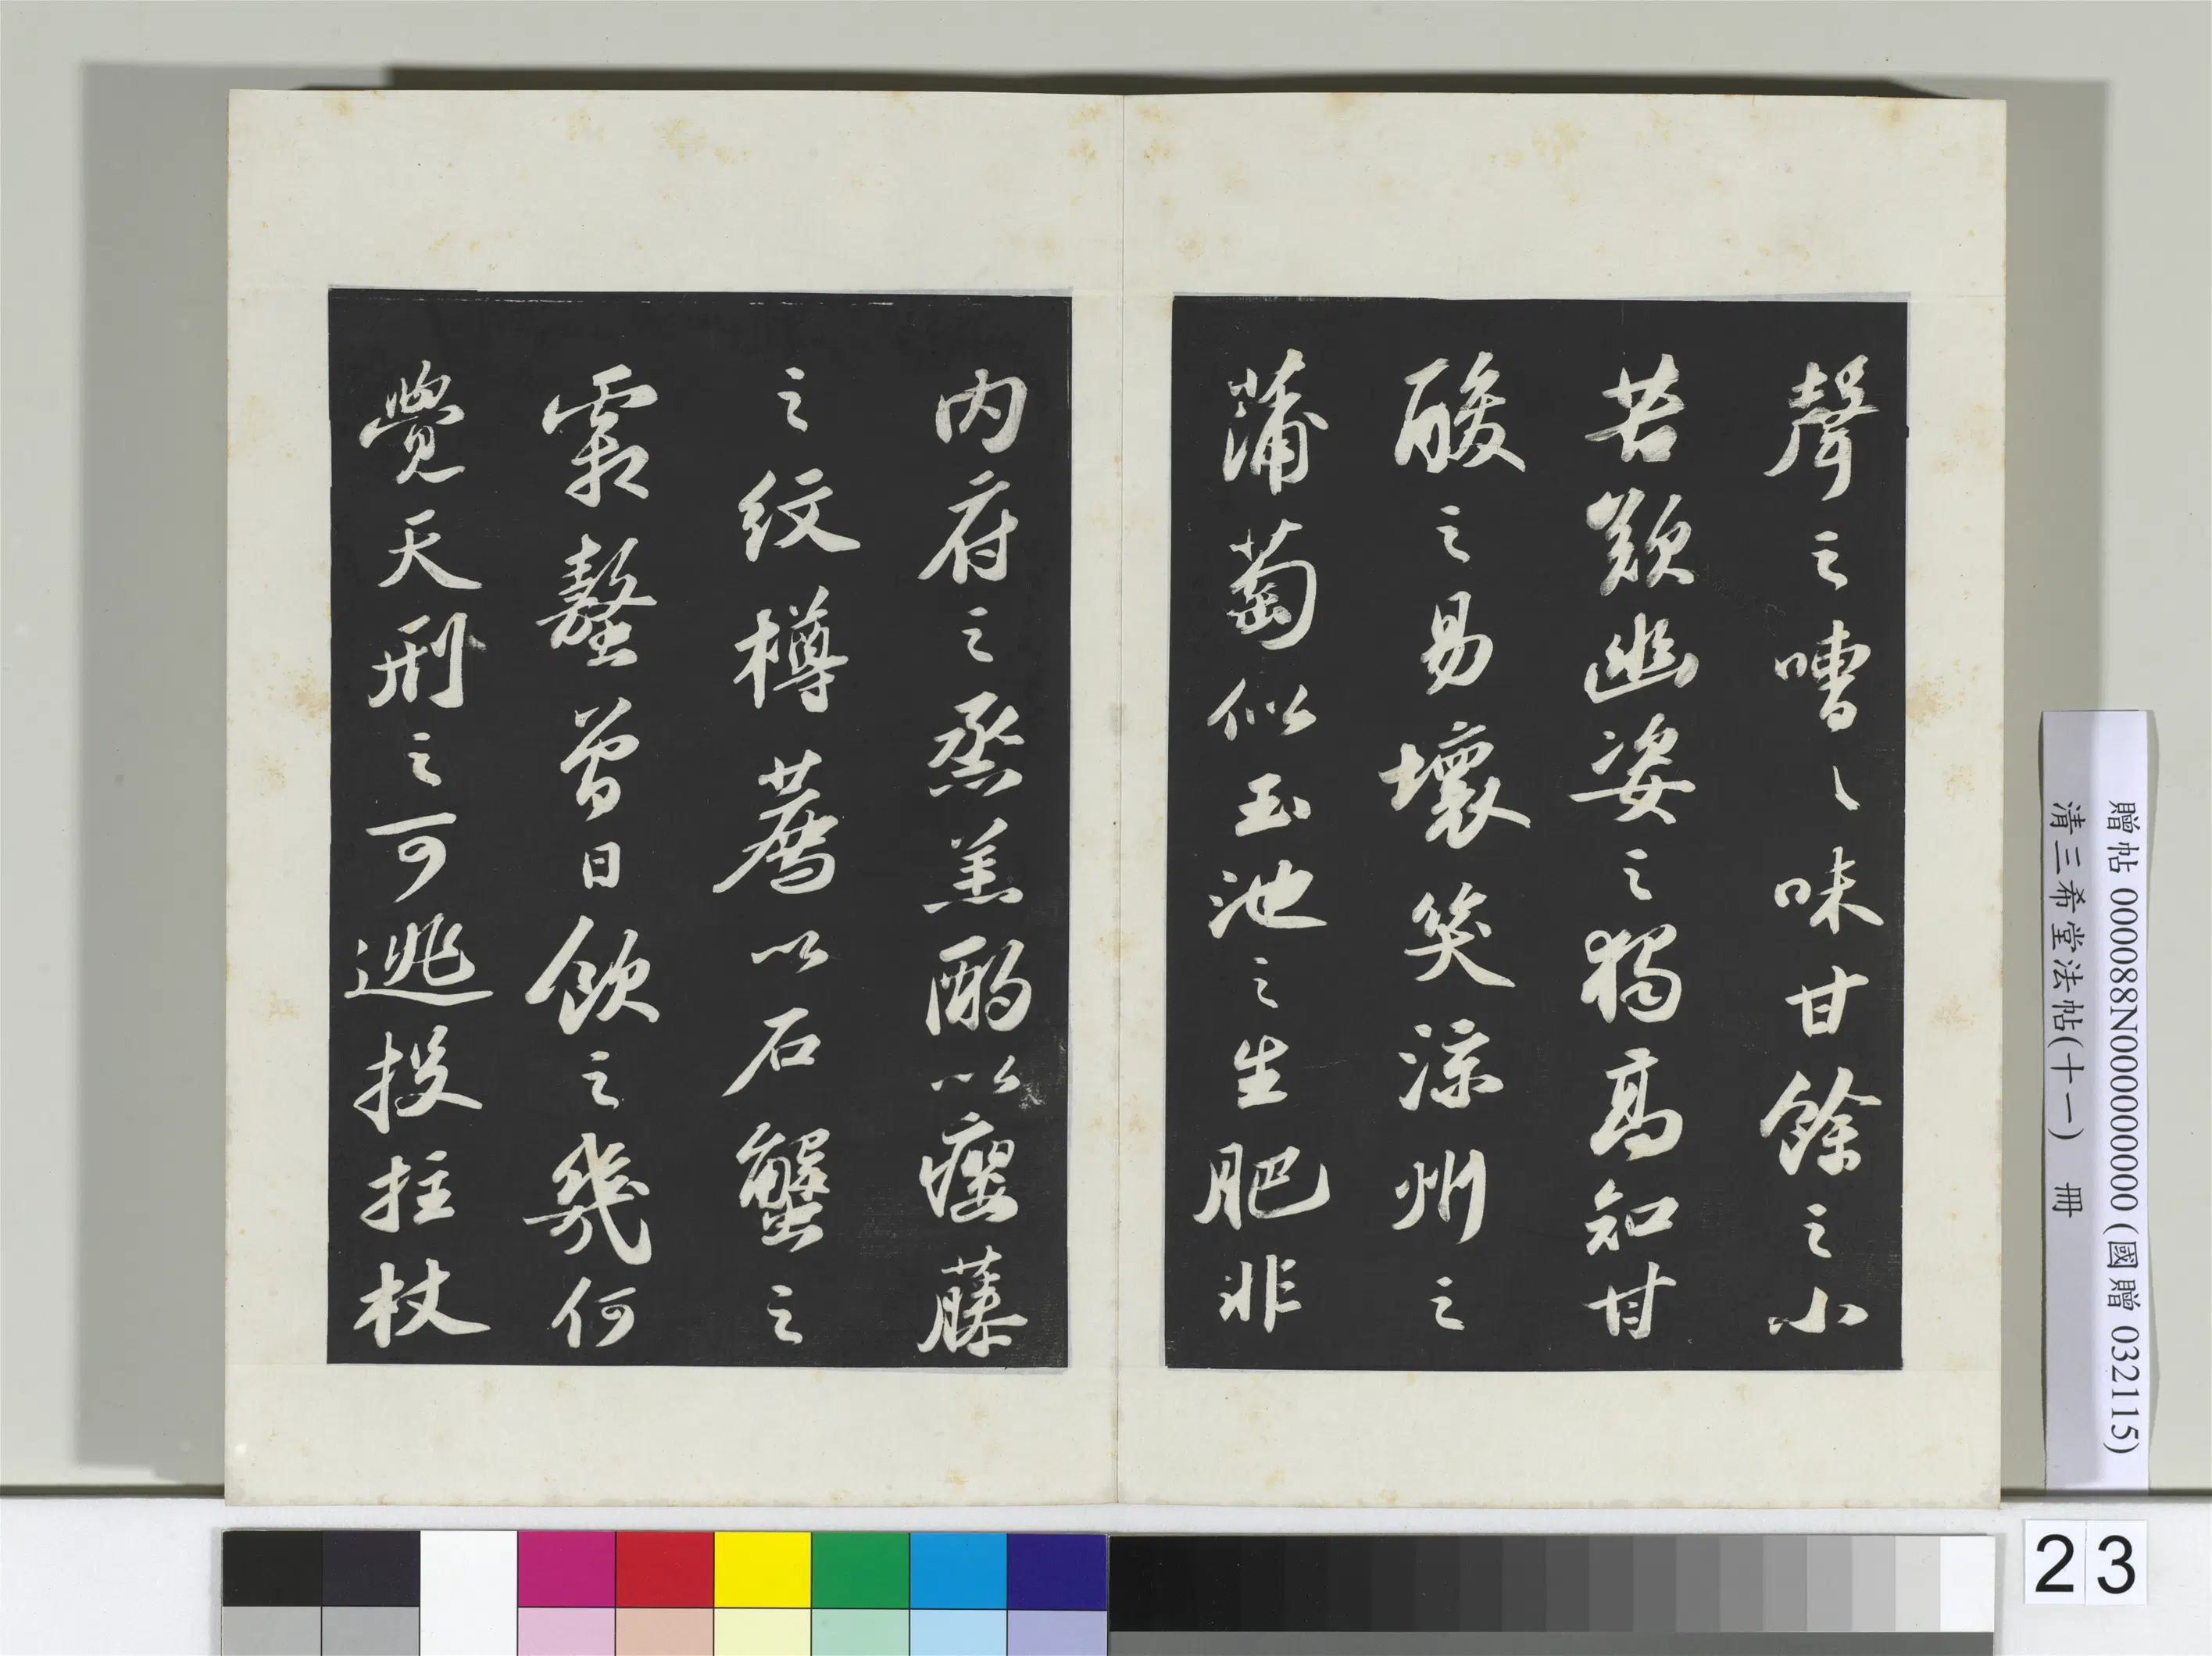 聲之嘈〻味甘餘之小
苦歎幽姿之獨高知甘
酸之易壞笑涼州之
蒲萄似玉池之生肥非
内府之烝羔酌以癭藤
之紋樽薦以石蟹之
霜螯曾日飲之幾何
覺天刑之可逃投拄杖
贈帖 000088N000000000 (國贈 032115)
清三希堂法帖(十一) 冊
23